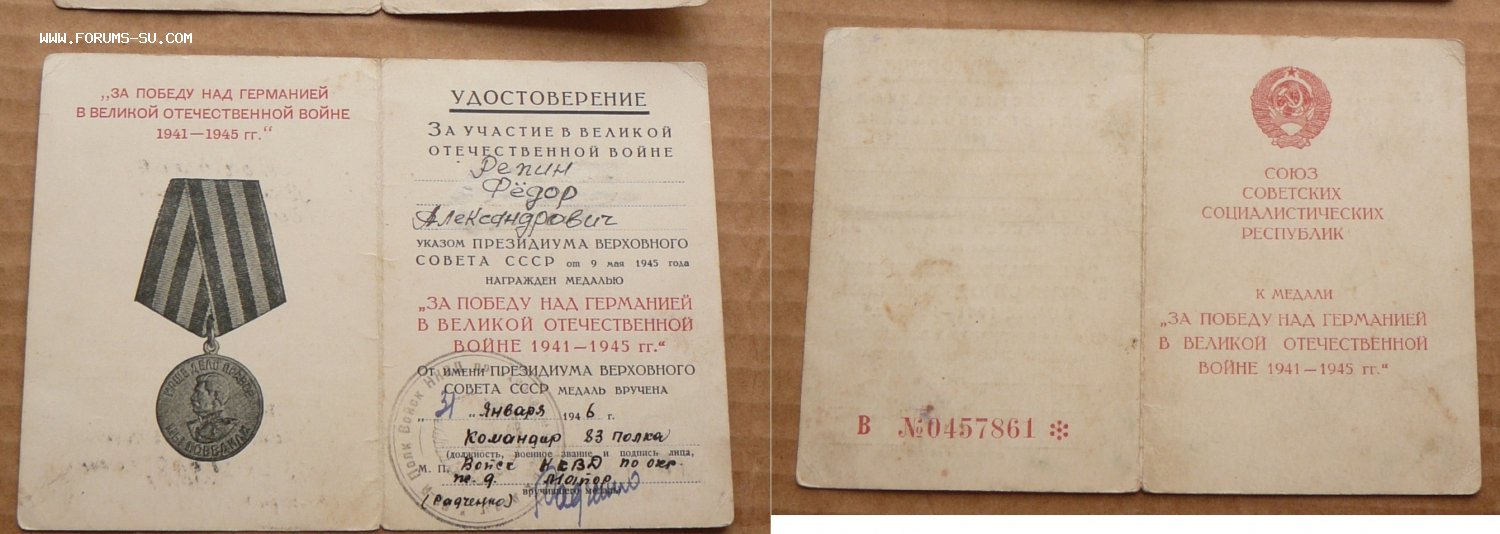 WWW.FORUMS-SU.COM
„ЗА ПОБЕДУ НАД ГЕРМАНИЕЙ
В ВЕЛИКОЙ ОТЕЧЕСТВЕННОЙ ВОЙНЕ
1941—1945 гг.“
НАШЕ ДЕЛО ПРАВОЕ
МЫ ПОБЕДИЛИ
УДОСТОВЕРЕНИЕ
ЗА УЧАСТИЕ В ВЕЛИКОЙ
ОТЕЧЕСТВЕННОЙ ВОЙНЕ
Репин
Фёдор
Александрович
УКАЗОМ ПРЕЗИДИУМА ВЕРХОВНОГО
СОВЕТА СССР от 9 мая 1945 года
НАГРАЖДЕН МЕДАЛЬЮ
„ЗА ПОБЕДУ НАД ГЕРМАНИЕЙ
В ВЕЛИКОЙ ОТЕЧЕСТВЕННОЙ
ВОЙНЕ 1941—1945 гг.“
ОТ ИМЕНИ ПРЕЗИДИУМА ВЕРХОВНОГО
СОВЕТА СССР МЕДАЛЬ ВРУЧЕНА
„31“ января 1946 г.
Командир 83 полка
(должность, военное звание и подпись лица,
М. П. Войск НКВД по охр.
ж.д. Майор
вручившего медаль)
(Радченко)
Полк Войск НКВД
СОЮЗ
СОВЕТСКИХ
СОЦИАЛИСТИЧЕСКИХ
РЕСПУБЛИК
К МЕДАЛИ
„ЗА ПОБЕДУ НАД ГЕРМАНИЕЙ
В ВЕЛИКОЙ ОТЕЧЕСТВЕННОЙ
ВОЙНЕ 1941—1945 гг.“
В №0457861